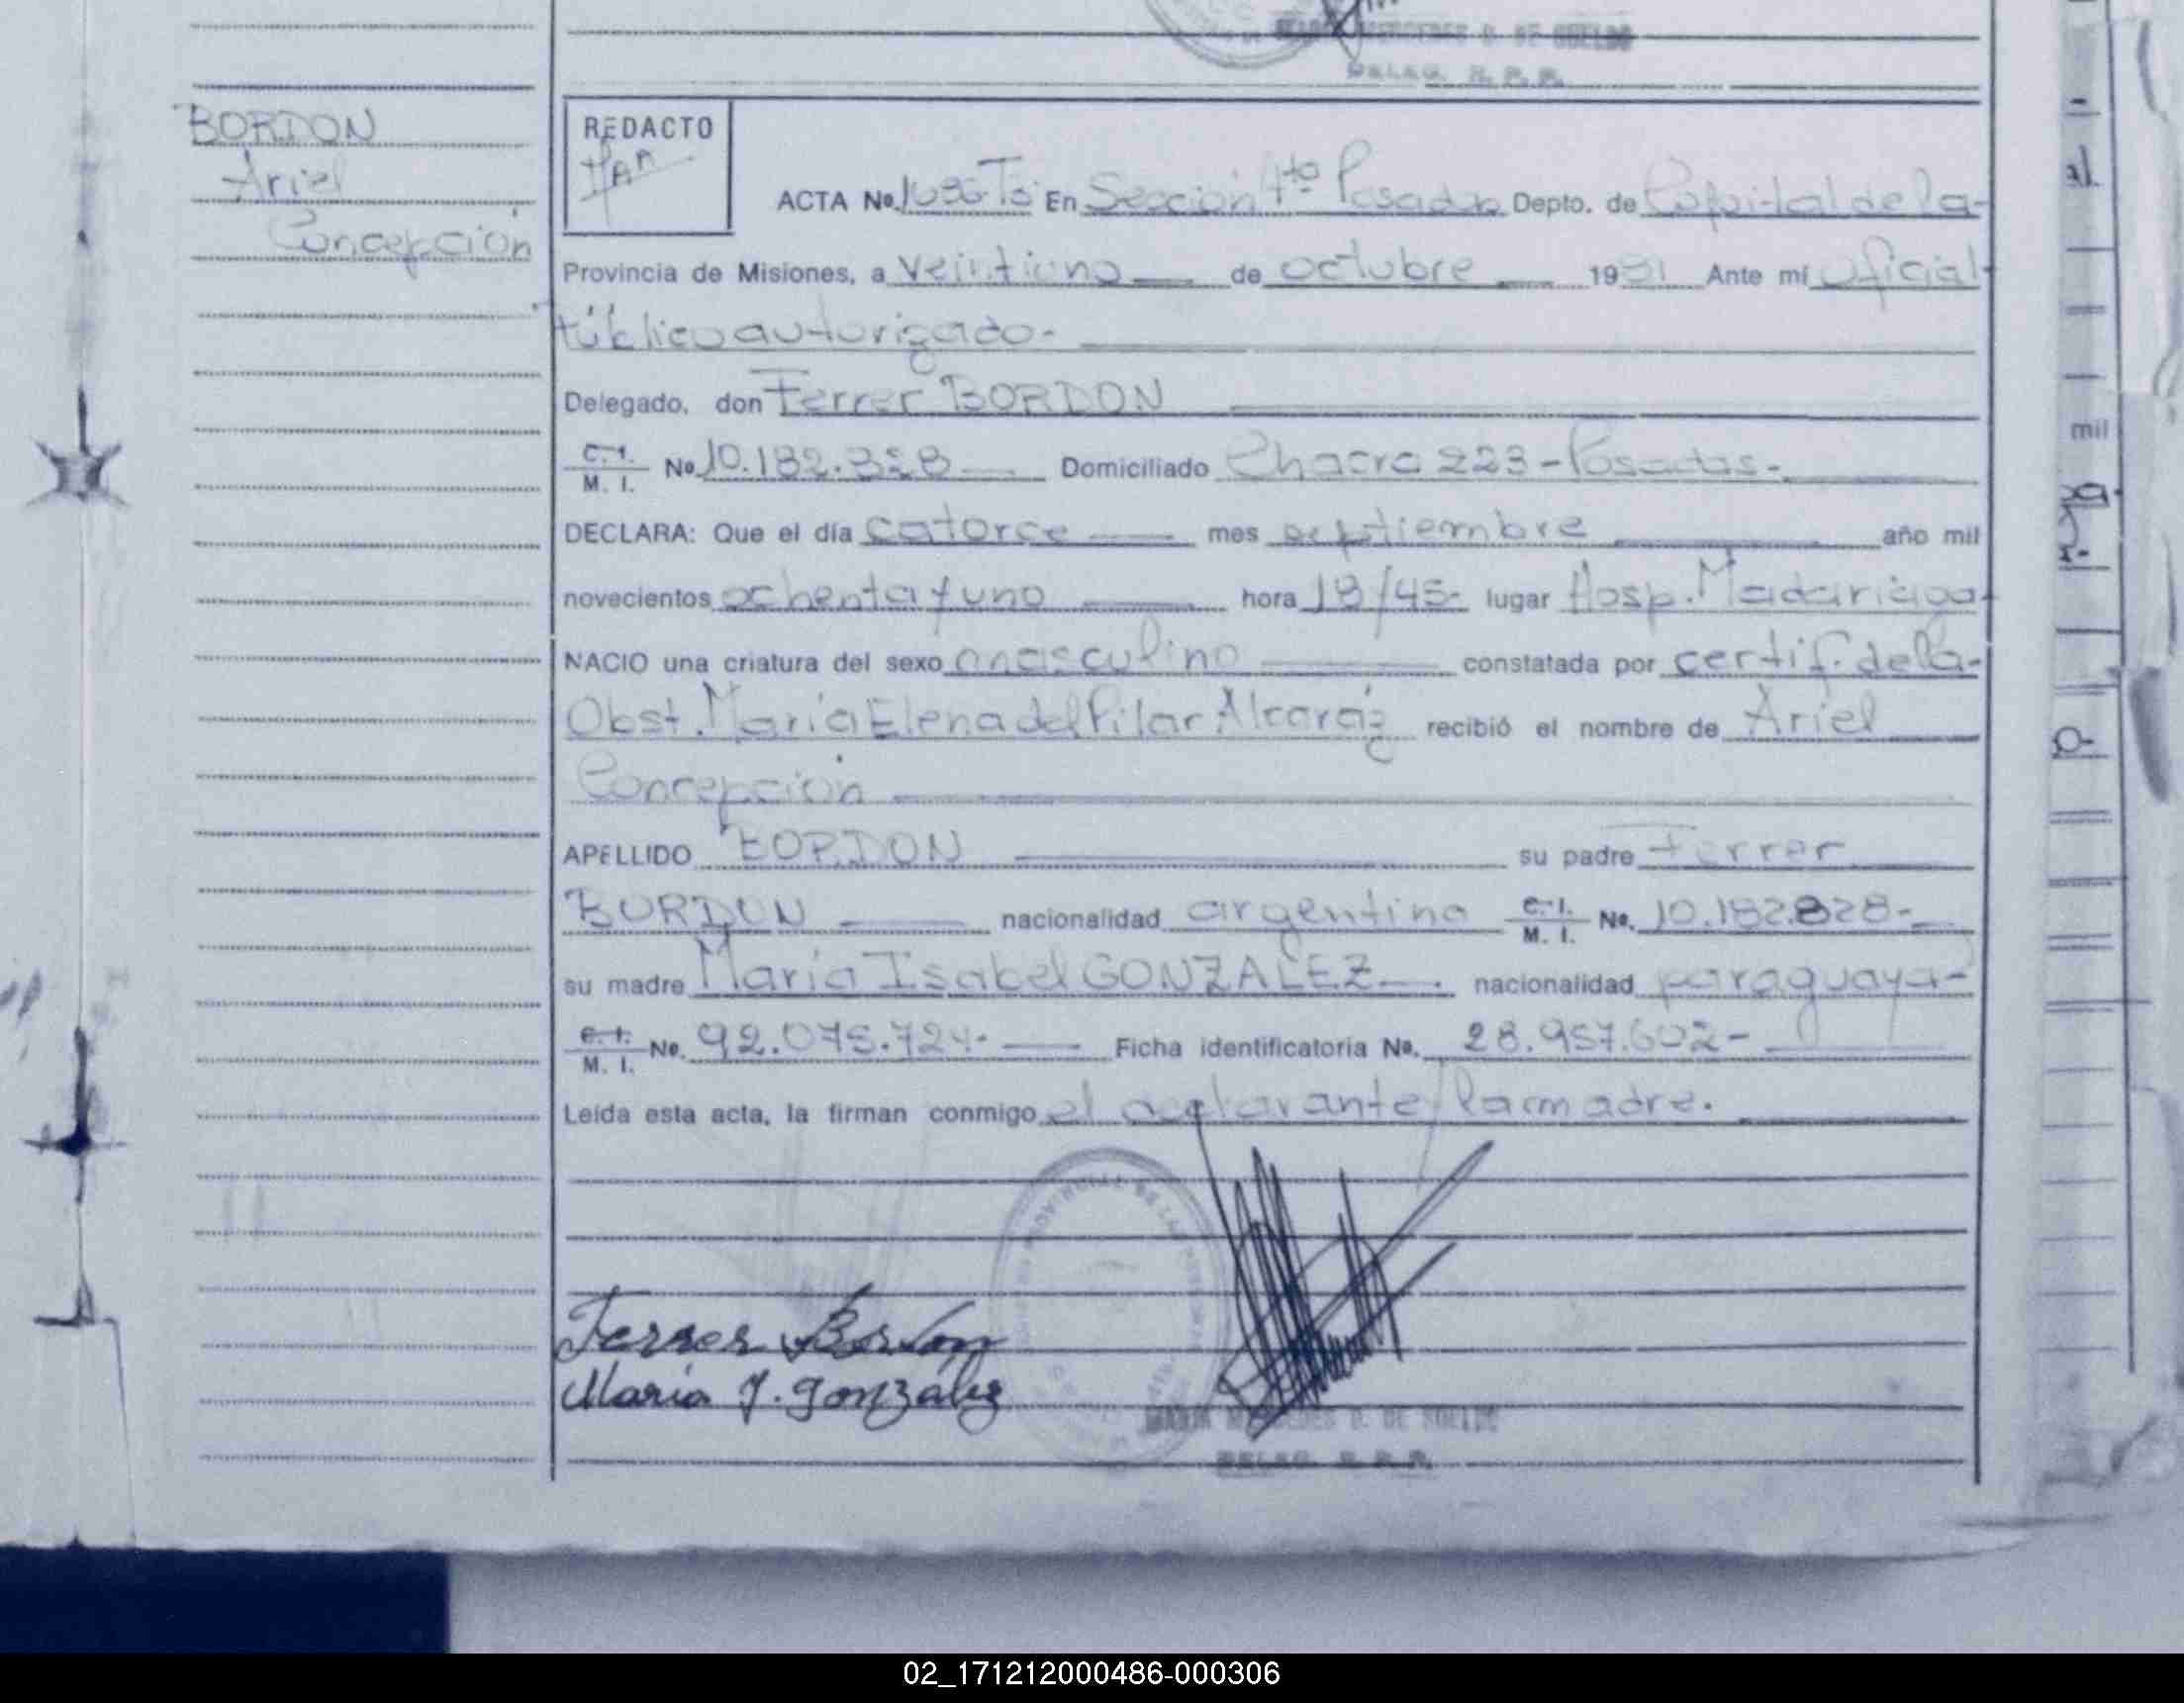 DE SUELDO
DELEG. R. P. P.
BORDON
Ariel
Concepción
REDACTO
ACTA No En Sección 4ta Posadas Depto. de Capital de la-
Provincia de Misiones, a veintiuno de octubre 1981 Ante mí oficial
público autorizado-
Delegado, don Ferrer BORDON
C. I.
M. I. No 10.182.828 Domiciliado Chacra 223-Posadas-
DECLARA: Que el día catorce mes septiembre año mil
novecientos ochenta y uno hora 18/45- lugar Hosp. Madariaga-
NACIO una criatura del sexo masculino constatada por certif. de la-
Obst. María Elena del Pilar Alcaráz recibió el nombre de Ariel
Concepción
APELLIDO BORDON su padre Ferrer
BORDON nacionalidad argentina C. I. M. I. No. 10.182.828-
su madre María Isabel GONZALEZ nacionalidad paraguaya-
C. I. M. I. No. 92.075.724- Ficha identificatoria No. 28.957.602-
Leída esta acta, la firman conmigo el declarante y la madre.
Ferrer Bordon
María Y. González
MARIA MERCEDES D. DE SUELDO
DELEG. R. P. P.
mil
02_171212000486-000306